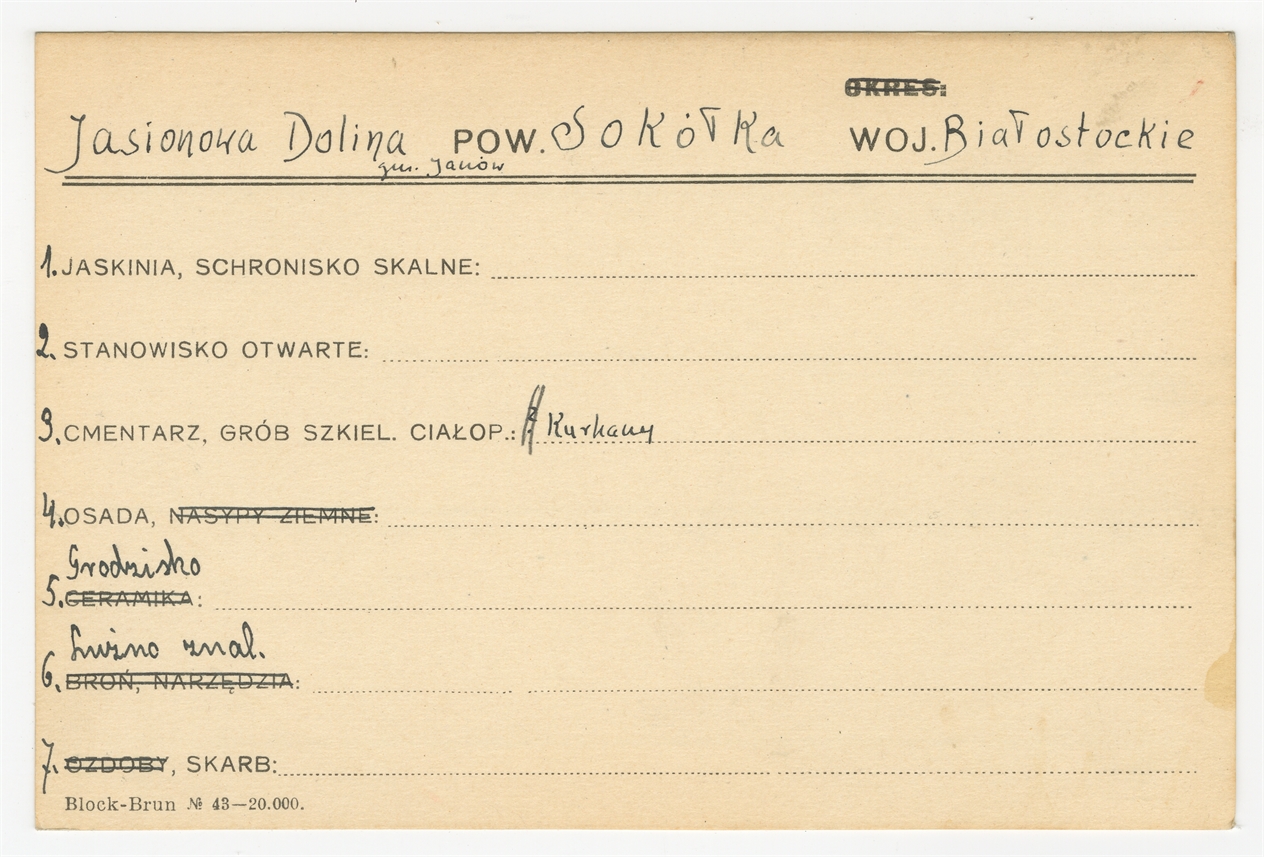 OKRES:
Jasionowa Dolina POW. Sokółka WOJ. Białostockie
gm. Janów
1. JASKINIA, SCHRONISKO SKALNE:
2. STANOWISKO OTWARTE:
3. CMENTARZ, GRÓB SZKIEL. CIAŁOP.: ? Kurhany
4. OSADA, NASYPY ZIEMNE:
Grodzisko
5. CERAMIKA:
Luźno znal.
6. BROŃ, NARZĘDZIA:
7. OZDOBY, SKARB:
Block-Brun № 43—20.000.